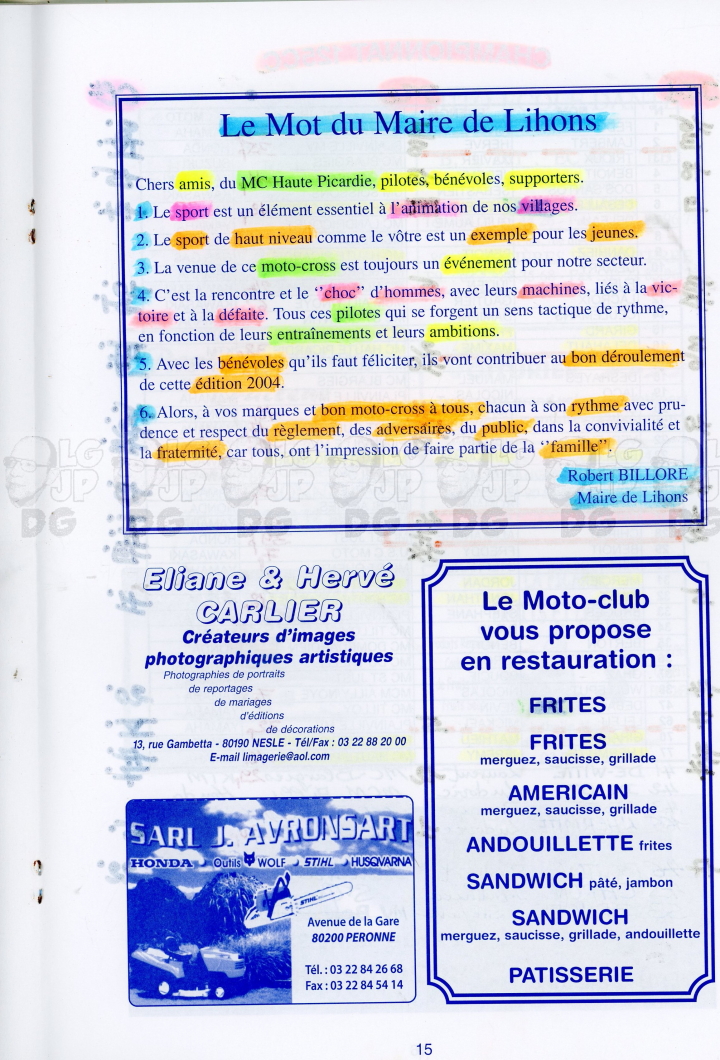 Le Mot du Maire de Lihons
Chers amis, du MC Haute Picardie, pilotes, bénévoles, supporters.
1. Le sport est un élément essentiel à l'animation de nos villages.
2. Le sport de haut niveau comme le vôtre est un exemple pour les jeunes.
3. La venue de ce moto-cross est toujours un événement pour notre secteur.
4. C'est la rencontre et le ‘’choc’’ d'hommes, avec leurs machines, liés à la vic-
toire et à la défaite. Tous ces pilotes qui se forgent un sens tactique de rythme,
en fonction de leurs entraînements et leurs ambitions.
5. Avec les bénévoles qu'ils faut féliciter, ils vont contribuer au bon déroulement
de cette édition 2004.
6. Alors, à vos marques et bon moto-cross à tous, chacun à son rythme avec pru-
dence et respect du règlement, des adversaires, du public, dans la convivialité et
la fraternité, car tous, ont l'impression de faire partie de la ‘’famille’’.
Robert BILLORE
Maire de Lihons
LG JP DG
Eliane & Hervé
CARLIER
Créateurs d'images
photographiques artistiques
Photographies de portraits
de reportages
de mariages
d'éditions
de décorations
13, rue Gambetta - 80190 NESLE - Tél/Fax : 03 22 88 20 00
E-mail limagerie@aol.com
SARL J. AVRONSART
HONDA Outils WOLF STIHL HUSQVARNA
STIHL
Avenue de la Gare
80200 PERONNE
Tél. : 03 22 84 26 68
Fax : 03 22 84 54 14
Le Moto-club
vous propose
en restauration :
FRITES
FRITES
merguez, saucisse, grillade
AMERICAIN
merguez, saucisse, grillade
ANDOUILLETTE frites
SANDWICH pâté, jambon
SANDWICH
merguez, saucisse, grillade, andouillette
PATISSERIE
15